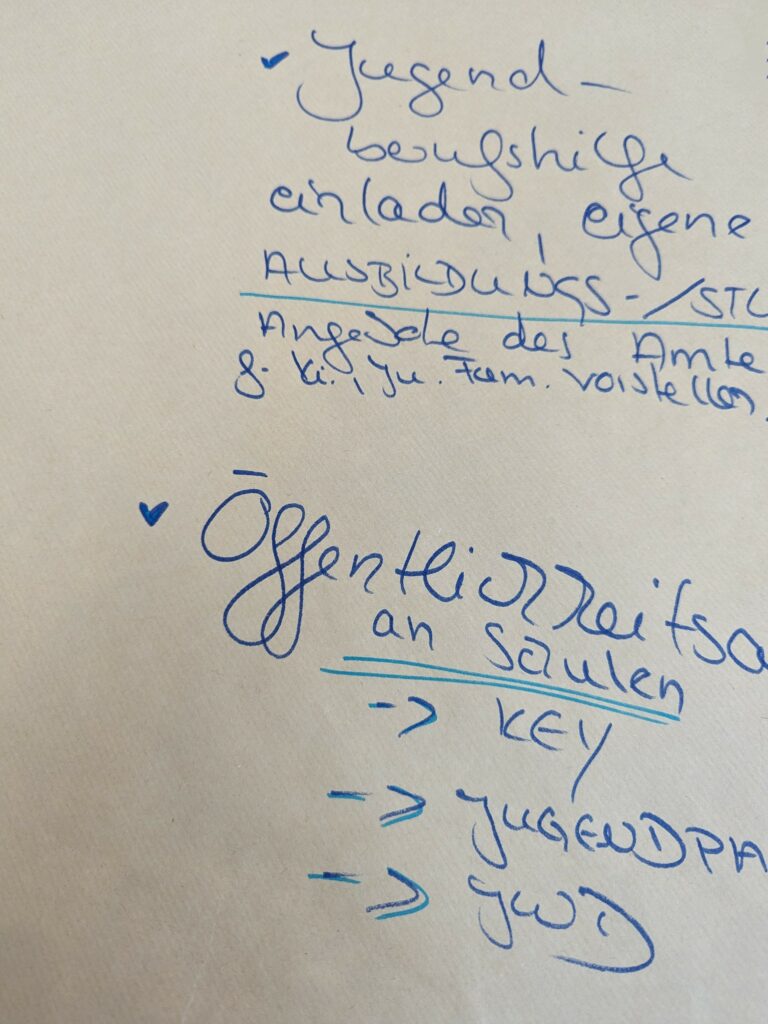 Jugend-
berufshilfe
einladen, eigene
AUSBILDUNGS-/STU
Angebote des Amte
f. Ki., Ju. Fam. vorstellen,
Öffentlichkeitsa
an Schulen
-> KEY
-> JUGENDPA
-> JWD